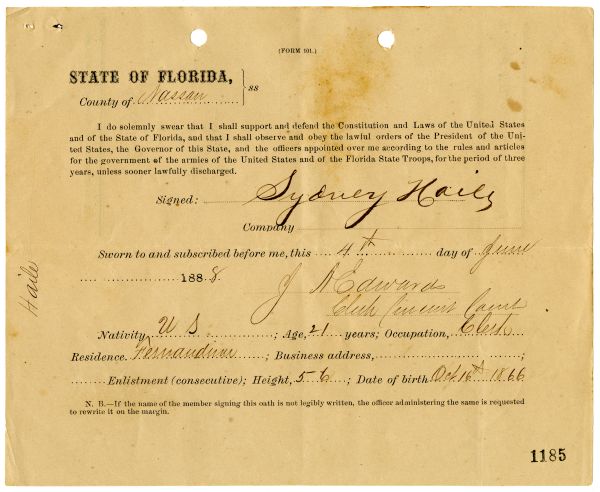 (FORM 101.)
STATE OF FLORIDA,
ss
County of Nassau
I do solemnly swear that I shall support and defend the Constitution and Laws of the United States
and of the State of Florida, and that I shall observe and obey the lawful orders of the President of the Uni-
ted States, the Governor of this State, and the officers appointed over me according to the rules and articles
for the government of the armies of the United States and of the Florida State Troops, for the period of three
years, unless sooner lawfully discharged.
Signed: Sydney Haile
Company
Sworn to and subscribed before me, this 4th day of June
1888.
J N Edwards
Clerk Circuit Court
Nativity U S. ; Age, 21 years; Occupation, Clerk
Residence. Fernandina ; Business address, ;
Enlistment (consecutive); Height, 5-6 ; Date of birth Oct 16th 1866
N. B.—If the name of the member signing this oath is not legibly written, the officer administering the same is requested
to rewrite it on the margin.
Haile
1185